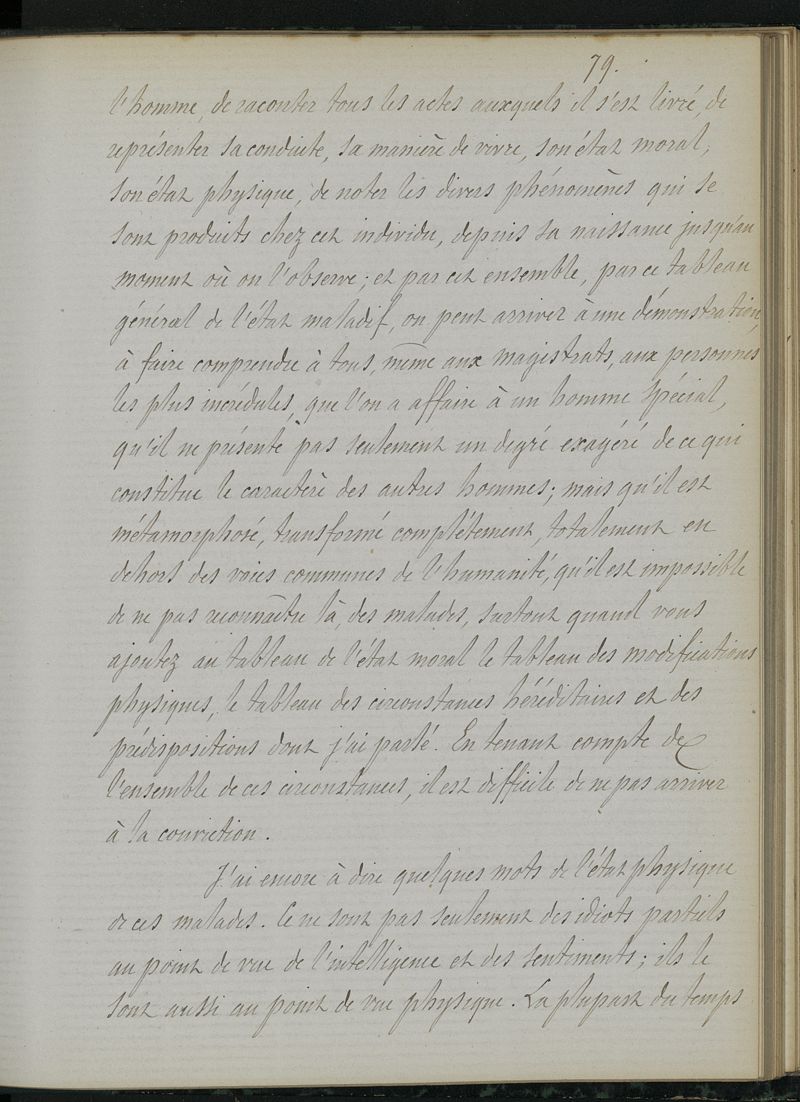 79.
l'homme, de raconter tous les actes auxquels il s'est livré, de
représenter sa conduite, sa manière de vivre, son état moral,
son état physique, de noter les divers phénomènes qui se
sont produits chez cet individu, depuis sa naissance jusqu'au
moment où on l'observe; et par cet ensemble, par ce tableau
général de l'état maladif, on peut arriver à une démonstration,
à faire comprendre à tous, même aux magistrats, aux personnes
les plus incrédules, que l'on a affaire à un homme spécial,
qu'il ne présente pas seulement un degré exagéré de ce qui
constitue le caractère des autres hommes; mais qu'il est
métamorphosé, transformé complétement, totalement en
dehors des voies communes de l'humanité, qu'il est impossible
de ne pas reconnaître là, des malades, surtout quand vous
ajoutez au tableau de l'état moral le tableau des modifications
physiques, le tableau des circonstances héréditaires et des
prédispositions dont j'ai parlé. En tenant compte de
l'ensemble de ces circonstances, il est difficile de ne pas arriver
à la conviction.
J'ai encore à dire quelques mots de l'état physique
de ces malades. Ce ne sont pas seulement des idiots partiels
au point de vue de l'intelligence et des sentiments; ils le
sont aussi au point de vue physique. La plupart du temps